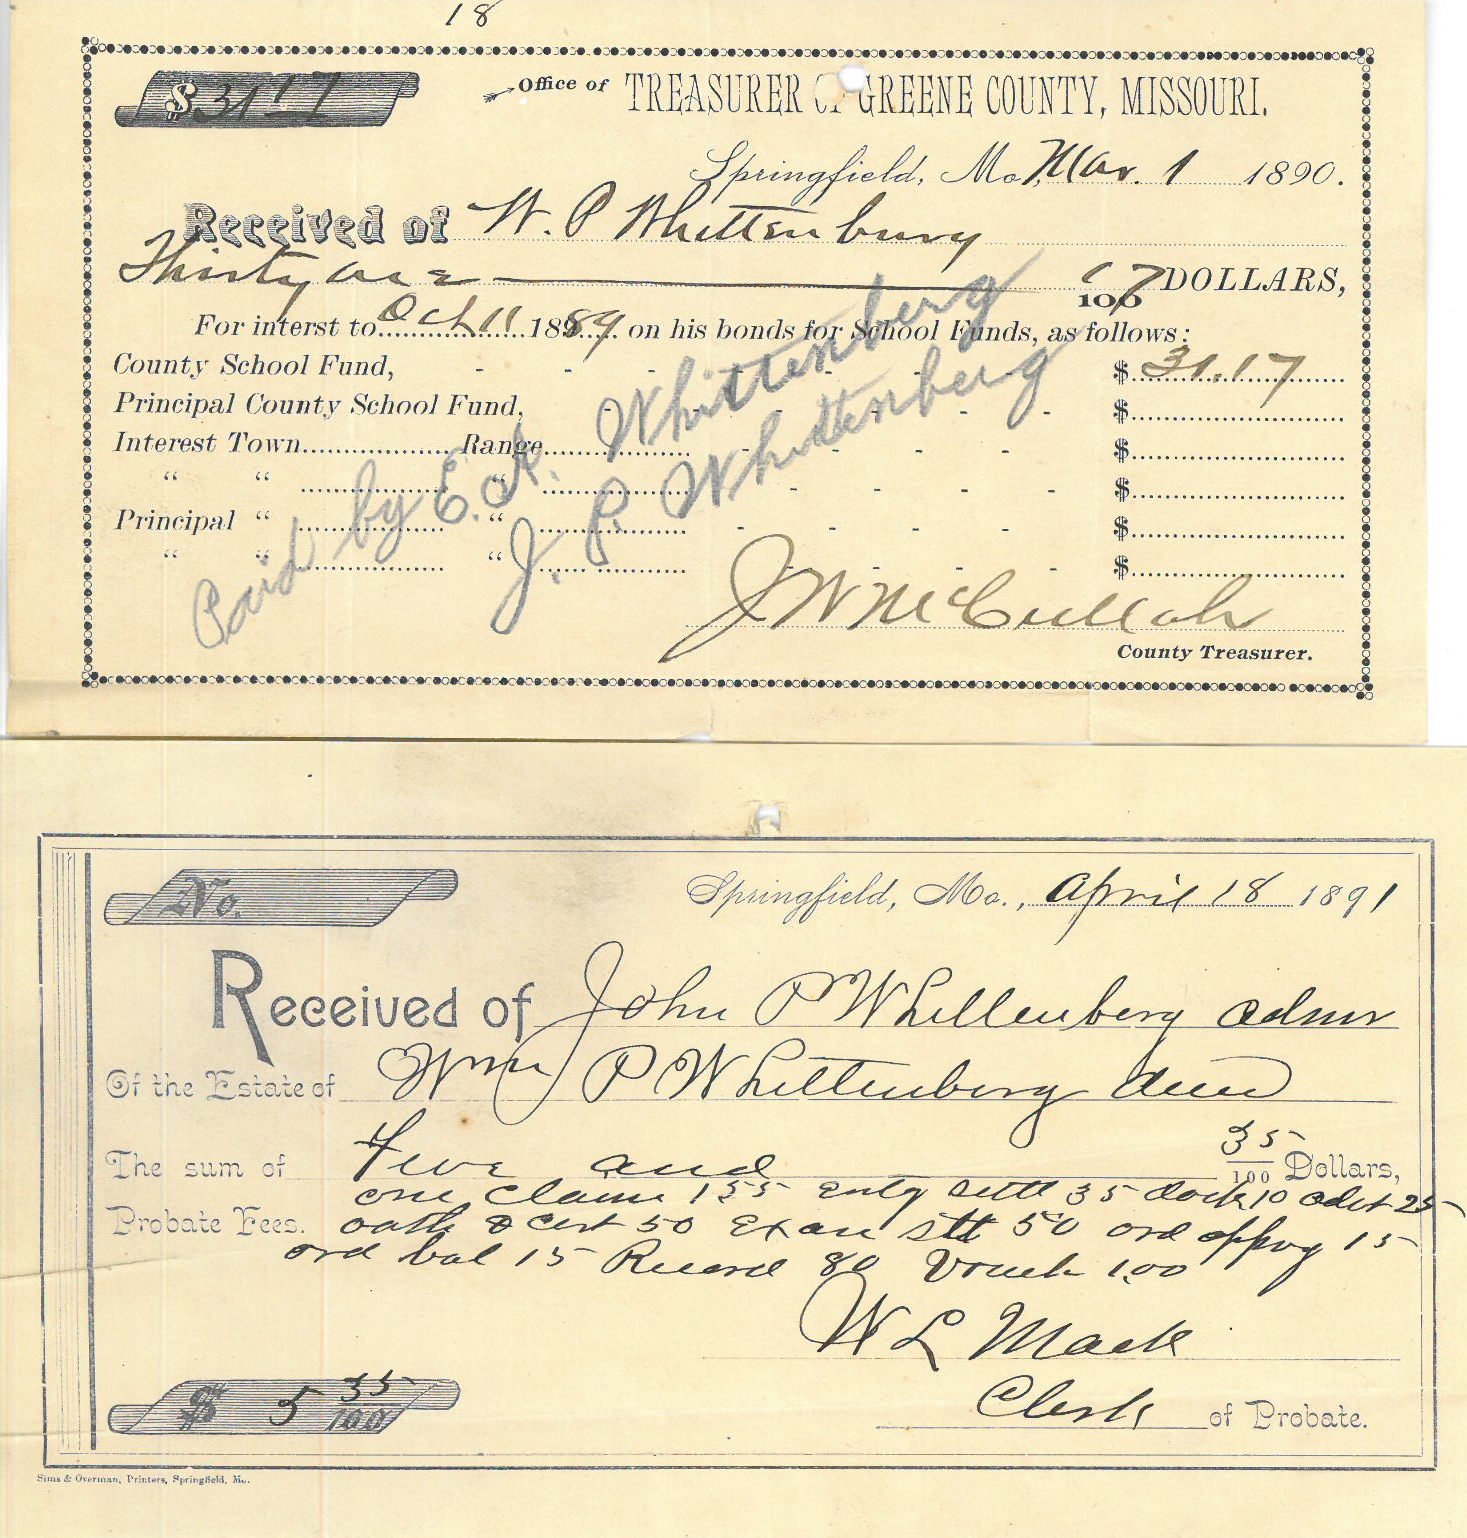 18
$31 17
Office of TREASURER OF GREENE COUNTY, MISSOURI.
Springfield, Mo., Mar. 1 1890.
Received of W. P Whittenburg
Thirty one 17/100 DOLLARS,
For interst to Oct 11 1889 on his bonds for School Funds, as follows:
County School Fund, - - - - - $ 31.17
Principal County School Fund, - - - - - $
Interest Town Range - - - - $
" " " - - - - $
Principal " " - - - - $
" " " - - - $
Paid by E. A. Whittenberg
J. P. Whittenberg
J W McCullah
County Treasurer.
No.
Springfield, Mo., April 18 1891
Received of John P Whittenberg admr
Of the Estate of Wm P Whittenberg decd
The sum of Five and 35/100 Dollars,
one Claim 1 55 entg settl 35 dock 10 adst 25
Probate Fees. oath & cert 50 Exam stt 50 ord appvg 15
ord bal 15 Record 80 Vouch 1.00
W L Mack
Clerk of Probate.
$ 5 35/100
Sims & Overman, Printers, Springfield, Mo.